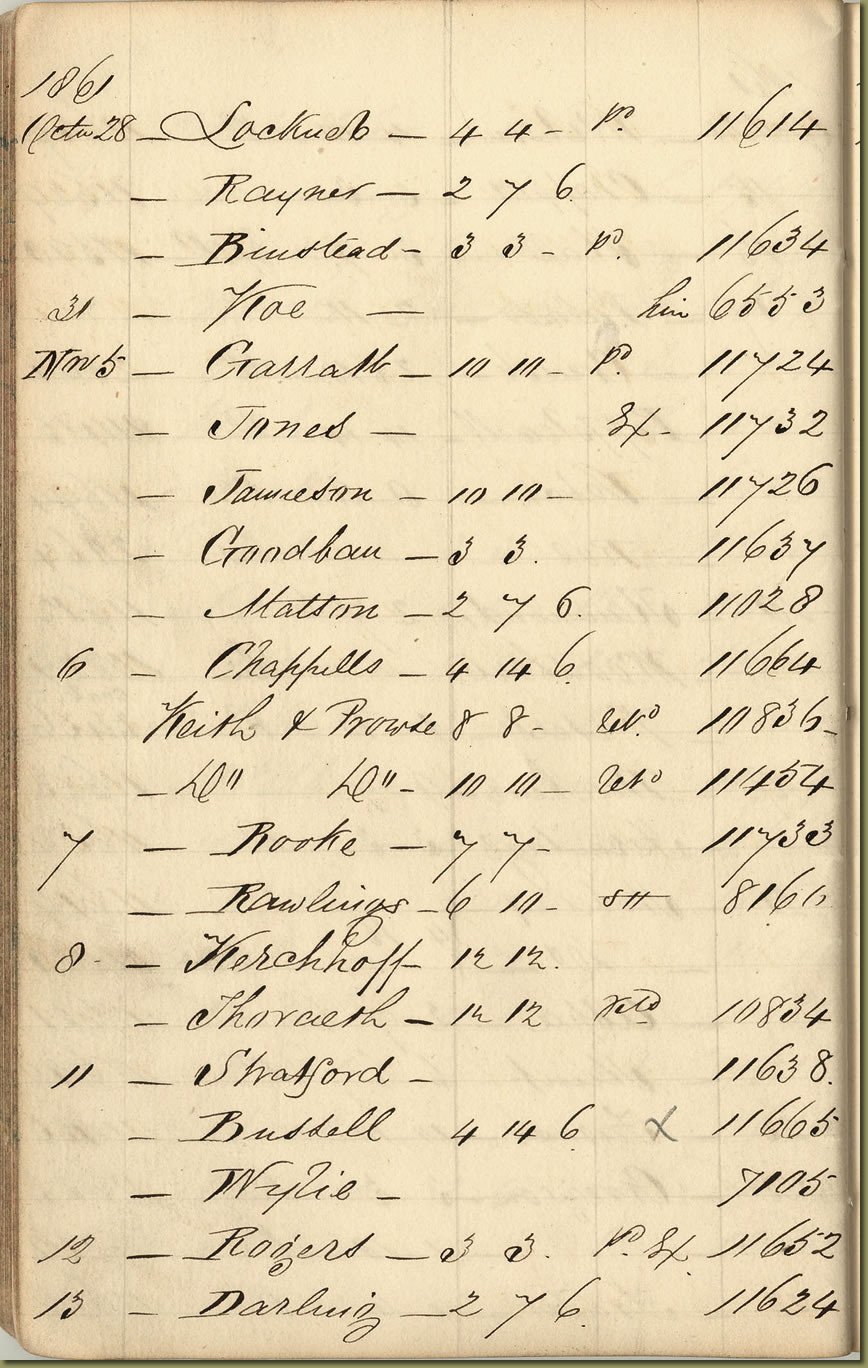 1861
Octr 28 — Lockneb — 4 4 - Pd. 11614
— Rayner — 2 7 6.
— Binstead - 3 3 - Pd. 11634
31 — Koe — hire 6553
Nov 5 — Garratt — 10 10 - Pd. 11724
— Jones — Ex - 11732
— Jamieson — 10 10 — 11726
— Goodban — 3 3. 11637
— Matson — 2 7 6. 11028
6 — Chappells — 4 14 6. 11664
Keith & Prowse 8 8 - Retd 10836 -
— Do" Do" - 10 10 — Retd 11454
7 — Rooke — 7 7 - 11733
— Rawlings — 6 10 - SH 8160
8 - — Kerchhoff — 12 12.
— Thoraeth — 12 12 Retd 10834
11 — Stratford — 11638.
— Bussell 4 14 6 X 11665
— Wylie — 7105
12 — Rogers — 3 3. Pd. Ex. 11652
13 — Darling — 2 7 6. 11624